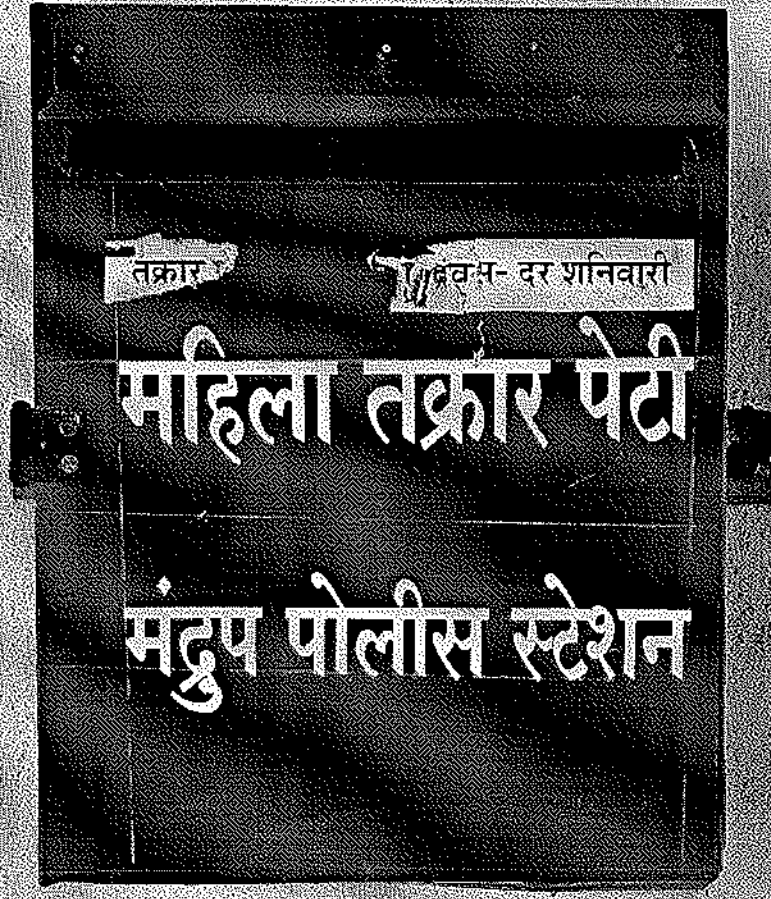 तक्रार दर शनिवारी
महिला तक्रार पेटी
मंद्रुप पोलीस स्टेशन